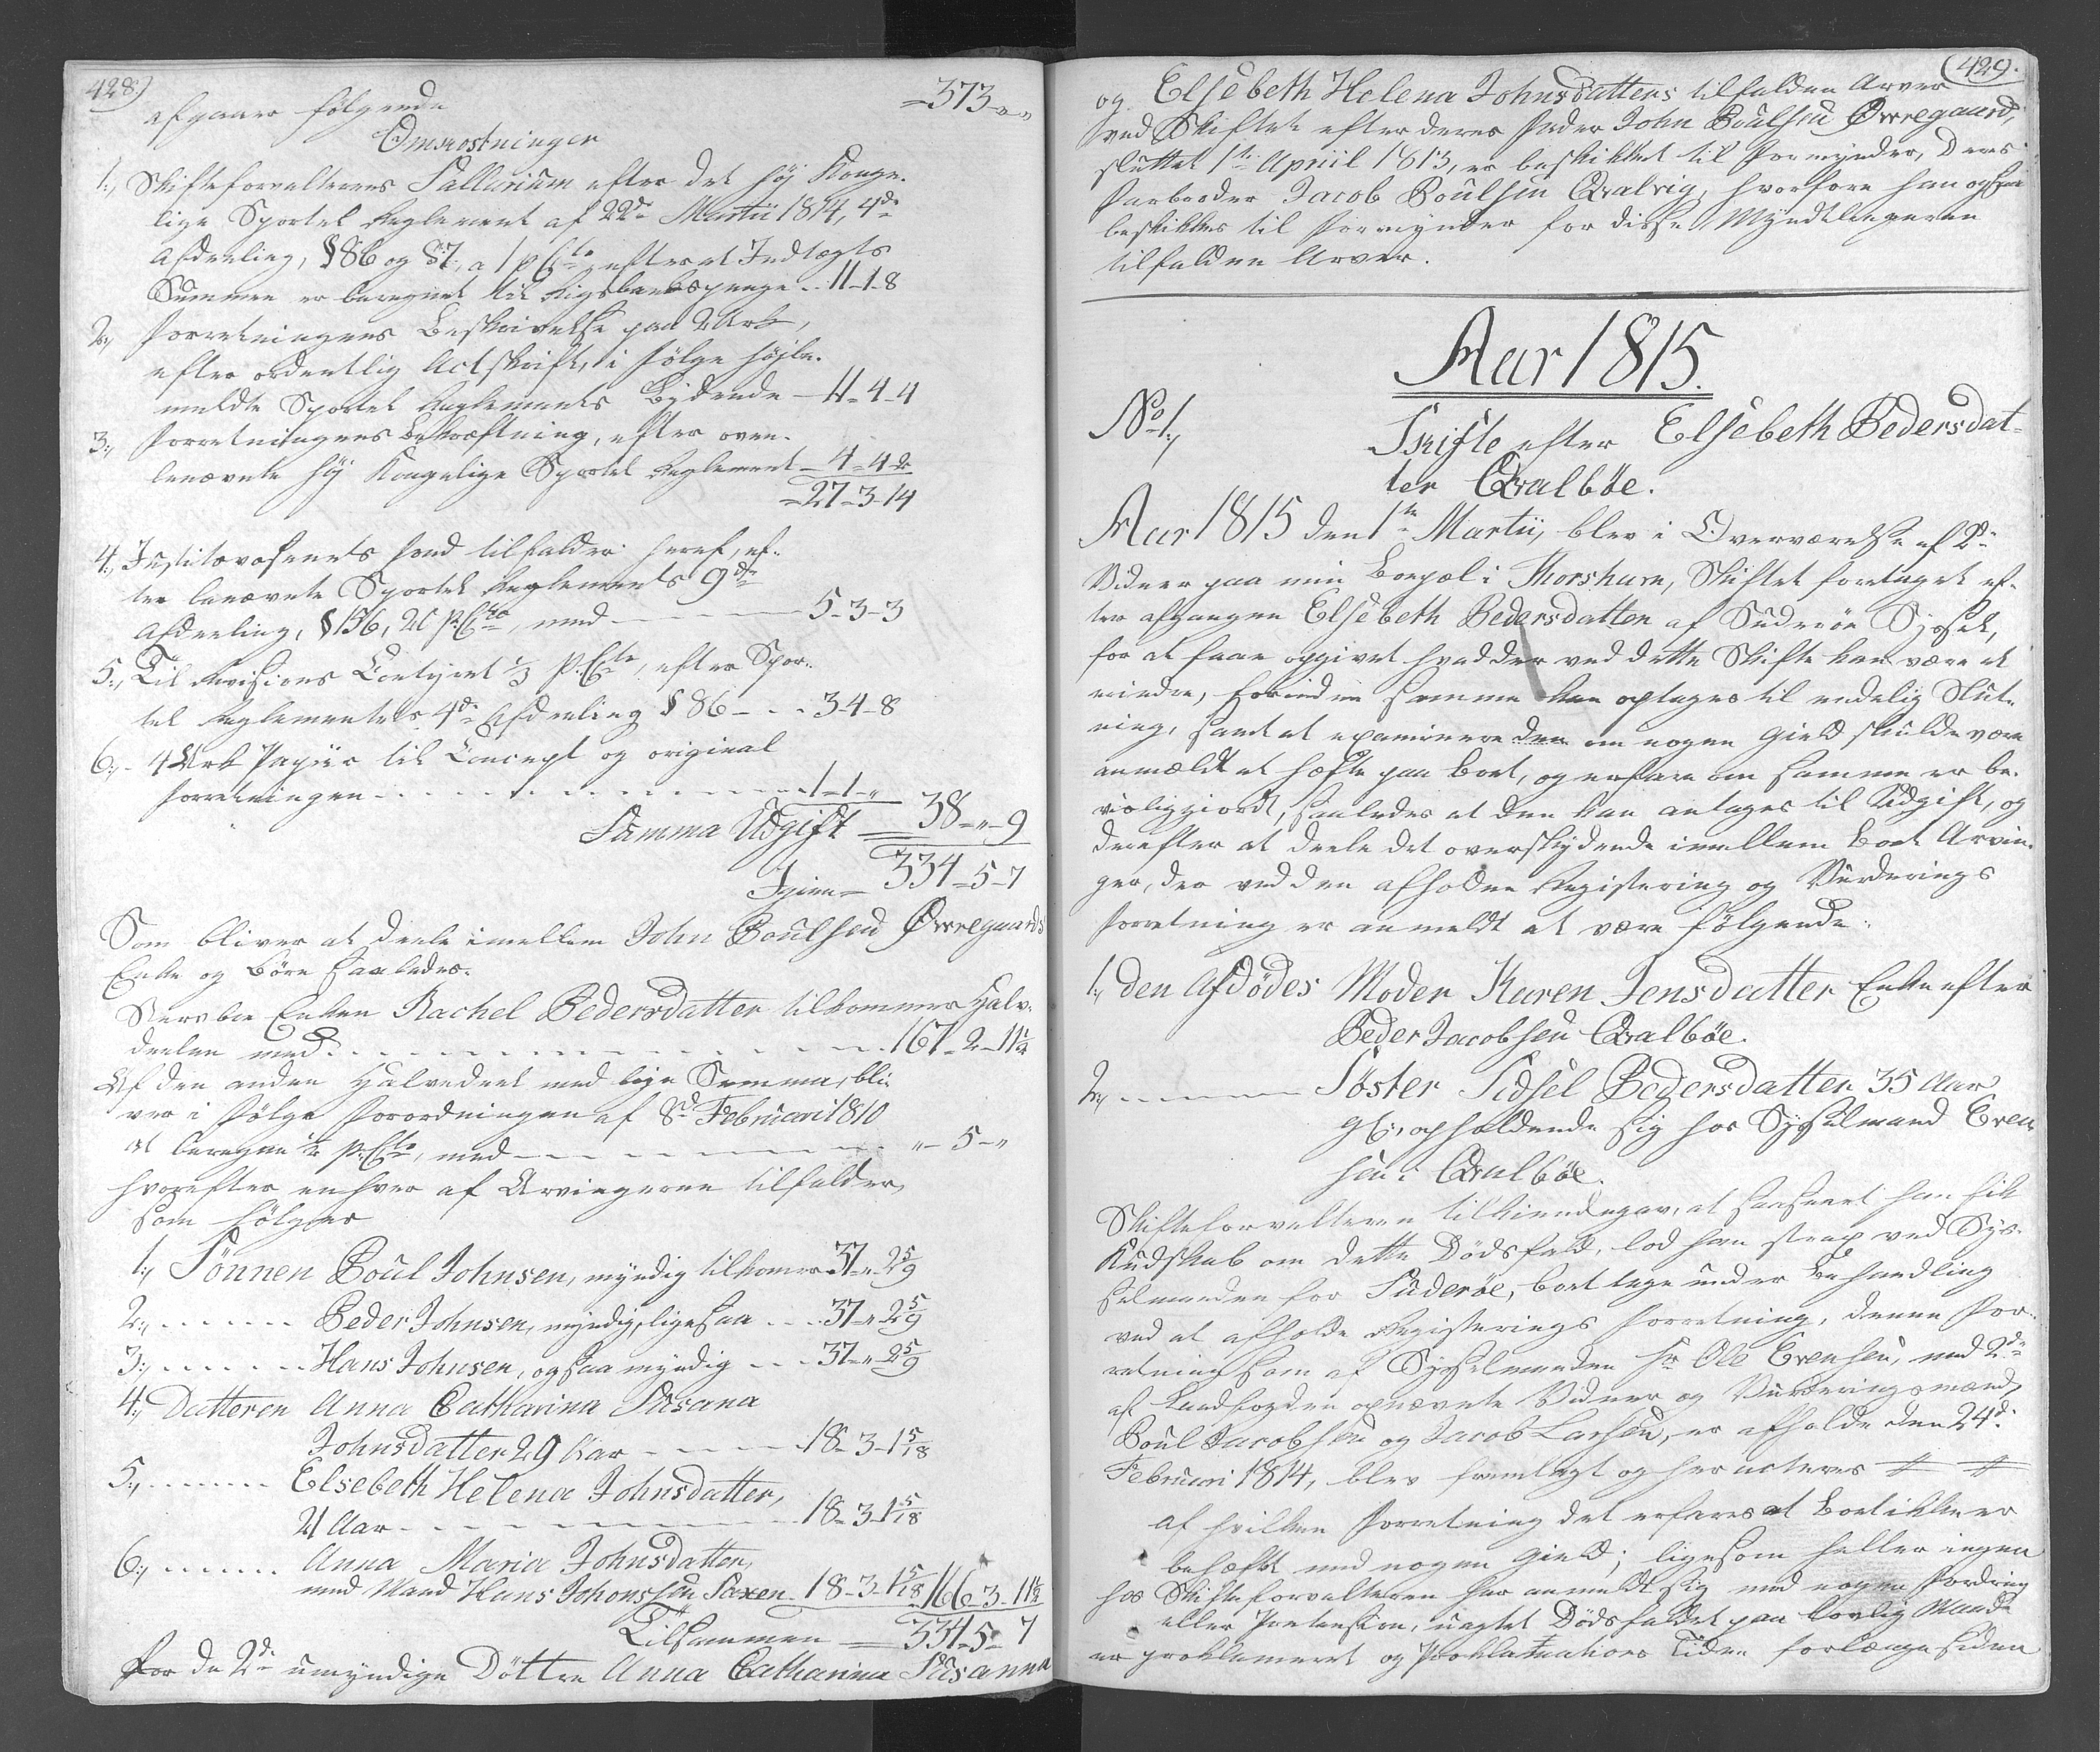 428.)
afgaaer følgende =373-"-"
Omkostninger
1., Skifteforvalterens Sallarium efter det høj Konge-
lige Sportel Reglement af 22de Martii 1814, 4de
Afdeeling, § 86 og 87, a 1 p Cto efter at Indtægts
Summen er beregnet til Rigsbankspenge .. 11-1-8
2., Forretningens Beskrivelse paa 2 Ark,
efter ordentlig Actskrift, i følge høj be-
meldte Sportel Reglements Bydende - 11-4-4
3., Forretningens Bekræftning, efter oven-
benævnte høj Kongelige Sportel Reglement - 4-4-2
=27-3-14
4., Justitsvæsenets Fond tilfalder heraf, ef-
ter benævnte Sportel Reglements 9de
Afdeeling, § 136, 20 p Cto, med - 5-3-3
5., Til Revisions Contoiret 1/3 p. Cto, efter Spor-
tel Reglementets 4de Afdeeling § 86 - . . 3-4-8
6., - 4 Ark Papiir til Concept og original
Forretningen . . . . 1-1-"
Summa Udgift = 38-"-9
Igien = 334-5-7
Som bliver at deele imellem John Poulsen Ørregaards
Enke og Børn saaledes.
Sterboe Enken Rachel Pedersdatter tilkommer Halv-
deelen med . . . . 167-2-11½
Af den anden Halvedeel med lige Summa, bli-
ver i følge Forordningen af 8de Februari 1810
at beregne ½ p. Cto, med - - - "-5-"
hvorefter enhver af Arvingerne tilfalder,
som følger
1., Sønnen Poul Johnsen, myndig tilkommer 37-"-2 5/9
2., . . . . . Peder Johnsen, myndig, ligesaa . . . 37-"-2 5/9
3., . . . . . Hans Johnsen, ogsaa myndig . . . 37-"-2 5/9
4., Datteren Anna Catharina Susana
Johnsdatter 29 Aar - - - - 18-3-1 5/18
5., - - - - Elsebeth Helena Johnsdatter,
21 Aar - - - - 18-3-1 5/18
6., - - - - Anna Maria Johnsdatter,
med Mand Hans Johonssen Saxen - 18-3-1 5/18 166-3-11½
Tilsammen = 334-5-7
For de 2de umyndige Døttre Anna Catharina Susanna
429.
og Elsebeth Helena Johnsdatters tilfaldne Arver
ved Skiftet efter deres Fader John Poulsen Ørregaard,
sluttet 1te April 1813, er beskikket til Formynder, deres
Farbroder Jacob Poulsen Qvalvig, hvorfore han ogsaa
beskikkes til Formynder for disse Myndtlingerne
tilfaldne Arver.
Aar 1815.
No 1.,
Skifte efter Elsebeth Pedersdat-
ter Qvalbøe.
Aar 1815 den 1te Martii, blev i Overværelse af 2de
Vidner paa min Boepæl i Thorshavn, Skiftet foretaget ef-
ter afgangne Elsebeth Pedersdatter af Suderöe Syssel,
for at faae opgivet hvad der ved dette Skifte kan være at
erindre, forinden samme kan optages til endelig Slut-
ning, samt at examinere den om nogen Gield skulde være
anmældt at hæfte paa Boet, og erfare om samme er be-
viisliggiort, saaledes at den kan antages til Udgift, og
derefter at deele det overskydende imellem Boets Arvin-
ger, der ved den afholdne Registering og Vurderings
Forretning er anmeldt at være følgende:
1., den Afdødes Moder Karen Jensdatter Enke efter
Peder Jacobsen Qvalbøe.
2., - - - - Søster Sidsel Pedersdatter 35 Aar
gl:, opholdende sig hos Sysselmand Even-
sen i Qvalbøe.
Skifteforvalteren tilkiendegav, at saasnart han fik
Kundskab om dette Dødsfald, lod han strax ved Sys-
selmanden for Suderöe, Boet tage under Behandling
ved at afholde Registerings Forretning, denne For-
retning som af Sysselmanden Hr Ole Evensen, med 2de
af Landfogden opnævnte Vidner og Vurderingsmænd,
Poul Jacobsen og Jacob Larsen, er afholdt den 24d.
Februari 1814, blev fremlagt og her acteres # #
Af hvilken Forretning det erfares at Boet ikke er
behæftet med nogen Gield; ligesom heller ingen
hos Skifteforvalteren har anmeldt sig med nogen Fordring
eller Prætension, uagtet Dødsfaldet paa lovlig Maade
er proklameret og Proklamations Tiden forlængst siden